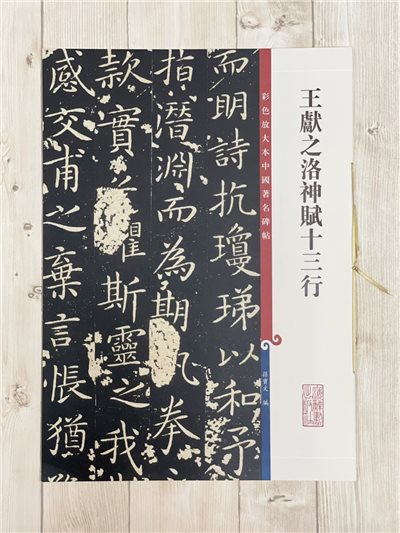 王獻之洛神賦十三行
彩色放大本中國著名碑帖
孫寶文 編
而明詩抗瓊珶以和予
指潛淵而為期執拳
款實兮懼斯靈之我
感交甫之棄言悵猶